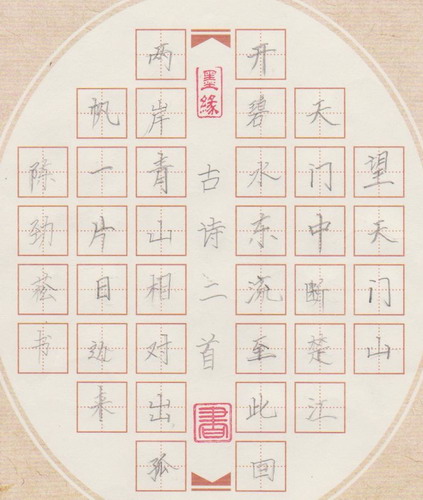 望天门山
天门中断楚江
开碧水东流至此回
墨緣
古诗二首
書
两岸青山相对出孤
帆一片日边来
劲松书